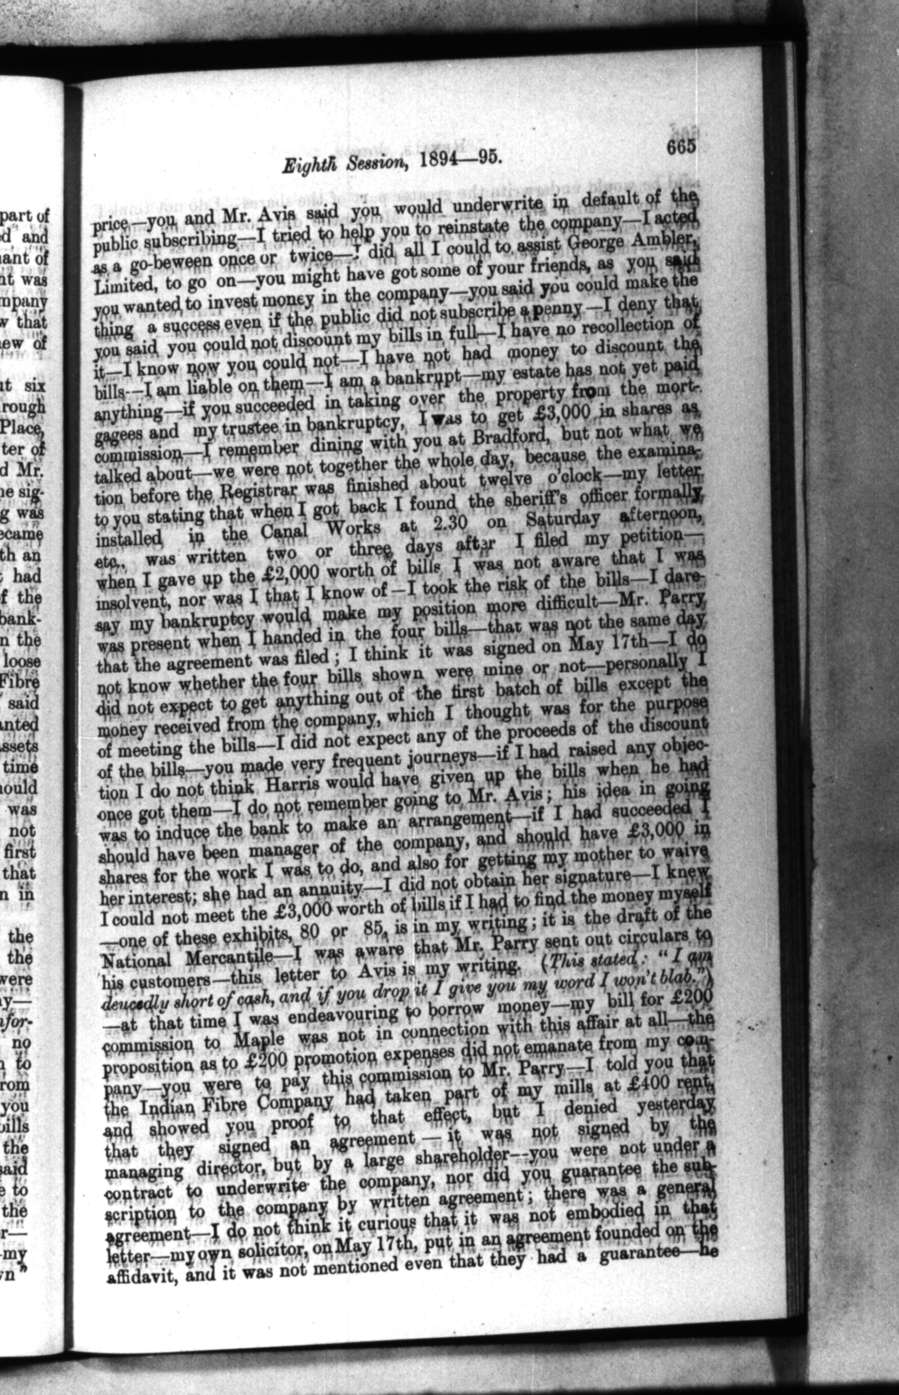 part of
d and
ant of
nt was
mpany
w that
ew of
ut six
rough
Place,
ter of
d Mr.
ne sig-
g was
ecame
th an
had
f the
bank-
n the
loose
Fibre
said
anted
assets
time
hould
was
not
first
that
n in
the
the
were
ny—
nfor-
no
n to
rom
you
bills
the
said
e to
the
r—
-my
vn"
Eighth Session, 1894—95.
665
price—you and Mr. Avis said you would underwrite in default of the
public subscribing—I tried to help you to reinstate the company—I acted
as a go-beween once or twice—I did all I could to assist George Ambler,
Limited, to go on—you might have got some of your friends, as you said
you wanted to invest money in the company—you said you could make the
thing a success even if the public did not subscribe a penny—I deny that
you said you could not discount my bills in full—I have no recollection of
it—I know now you could not—I have not had money to discount the
bills—I am liable on them—I am a bankrupt—my estate has not yet paid
anything—if you succeeded in taking over the property from the mort-
gagees and my trustee in bankruptcy, I was to get £3,000 in shares as
commission—I remember dining with you at Bradford, but not what we
talked about—we were not together the whole day, because the examina-
tion before the Registrar was finished about twelve o'clock—my letter
to you stating that when I got back I found the sheriff's officer formally
installed in the Canal Works at 2.30 on Saturday afternoon,
etc., was written two or three days after I filed my petition—
when I gave up the £2,000 worth of bills I was not aware that I was
insolvent, nor was I that I know of—I took the risk of the bills—I dare-
say my bankruptcy would make my position more difficult—Mr. Parry
was present when I handed in the four bills—that was not the same day
that the agreement was filed; I think it was signed on May 17th—I do
not know whether the four bills shown were mine or not—personally I
did not expect to get anything out of the first batch of bills except the
money received from the company, which I thought was for the purpose
of meeting the bills—I did not expect any of the proceeds of the discount
of the bills—you made very frequent journeys—if I had raised any objec-
tion I do not think Harris would have given up the bills when he had
once got them—I do not remember going to Mr. Avis; his idea in going
was to induce the bank to make an arrangement—if I had succeeded I
should have been manager of the company, and should have £3,000 in
shares for the work I was to do, and also for getting my mother to waive
her interest; she had an annuity—I did not obtain her signature—I knew
I could not meet the £3,000 worth of bills if I had to find the money myself
—one of these exhibits, 80 or 85, is in my writing; it is the draft of the
National Mercantile—I was aware that Mr. Parry sent out circulars to
his customers—this letter to Avis is my writing. (This stated: "I am
deucedly short of cash, and if you drop it I give you my word I won't blab.")
—at that time I was endeavouring to borrow money—my bill for £200
commission to Maple was not in connection with this affair at all—the
proposition as to £200 promotion expenses did not emanate from my com-
pany—you were to pay this commission to Mr. Parry—I told you that
the Indian Fibre Company had taken part of my mills at £400 rent,
and showed you proof to that effect, but I denied yesterday
that they signed an agreement—it was not signed by the
managing director, but by a large shareholder—you were not under a
contract to underwrite the company, nor did you guarantee the sub-
scription to the company by written agreement; there was a general
agreement—I do not think it curious that it was not embodied in that
letter—my own solicitor, on May 17th, put in an agreement founded on the
affidavit, and it was not mentioned even that they had a guarantee—he